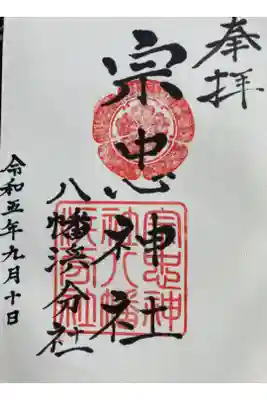 奉拝
宗忠神社
八幡浜分社
令和五年九月十日
宗忠神
社八幡